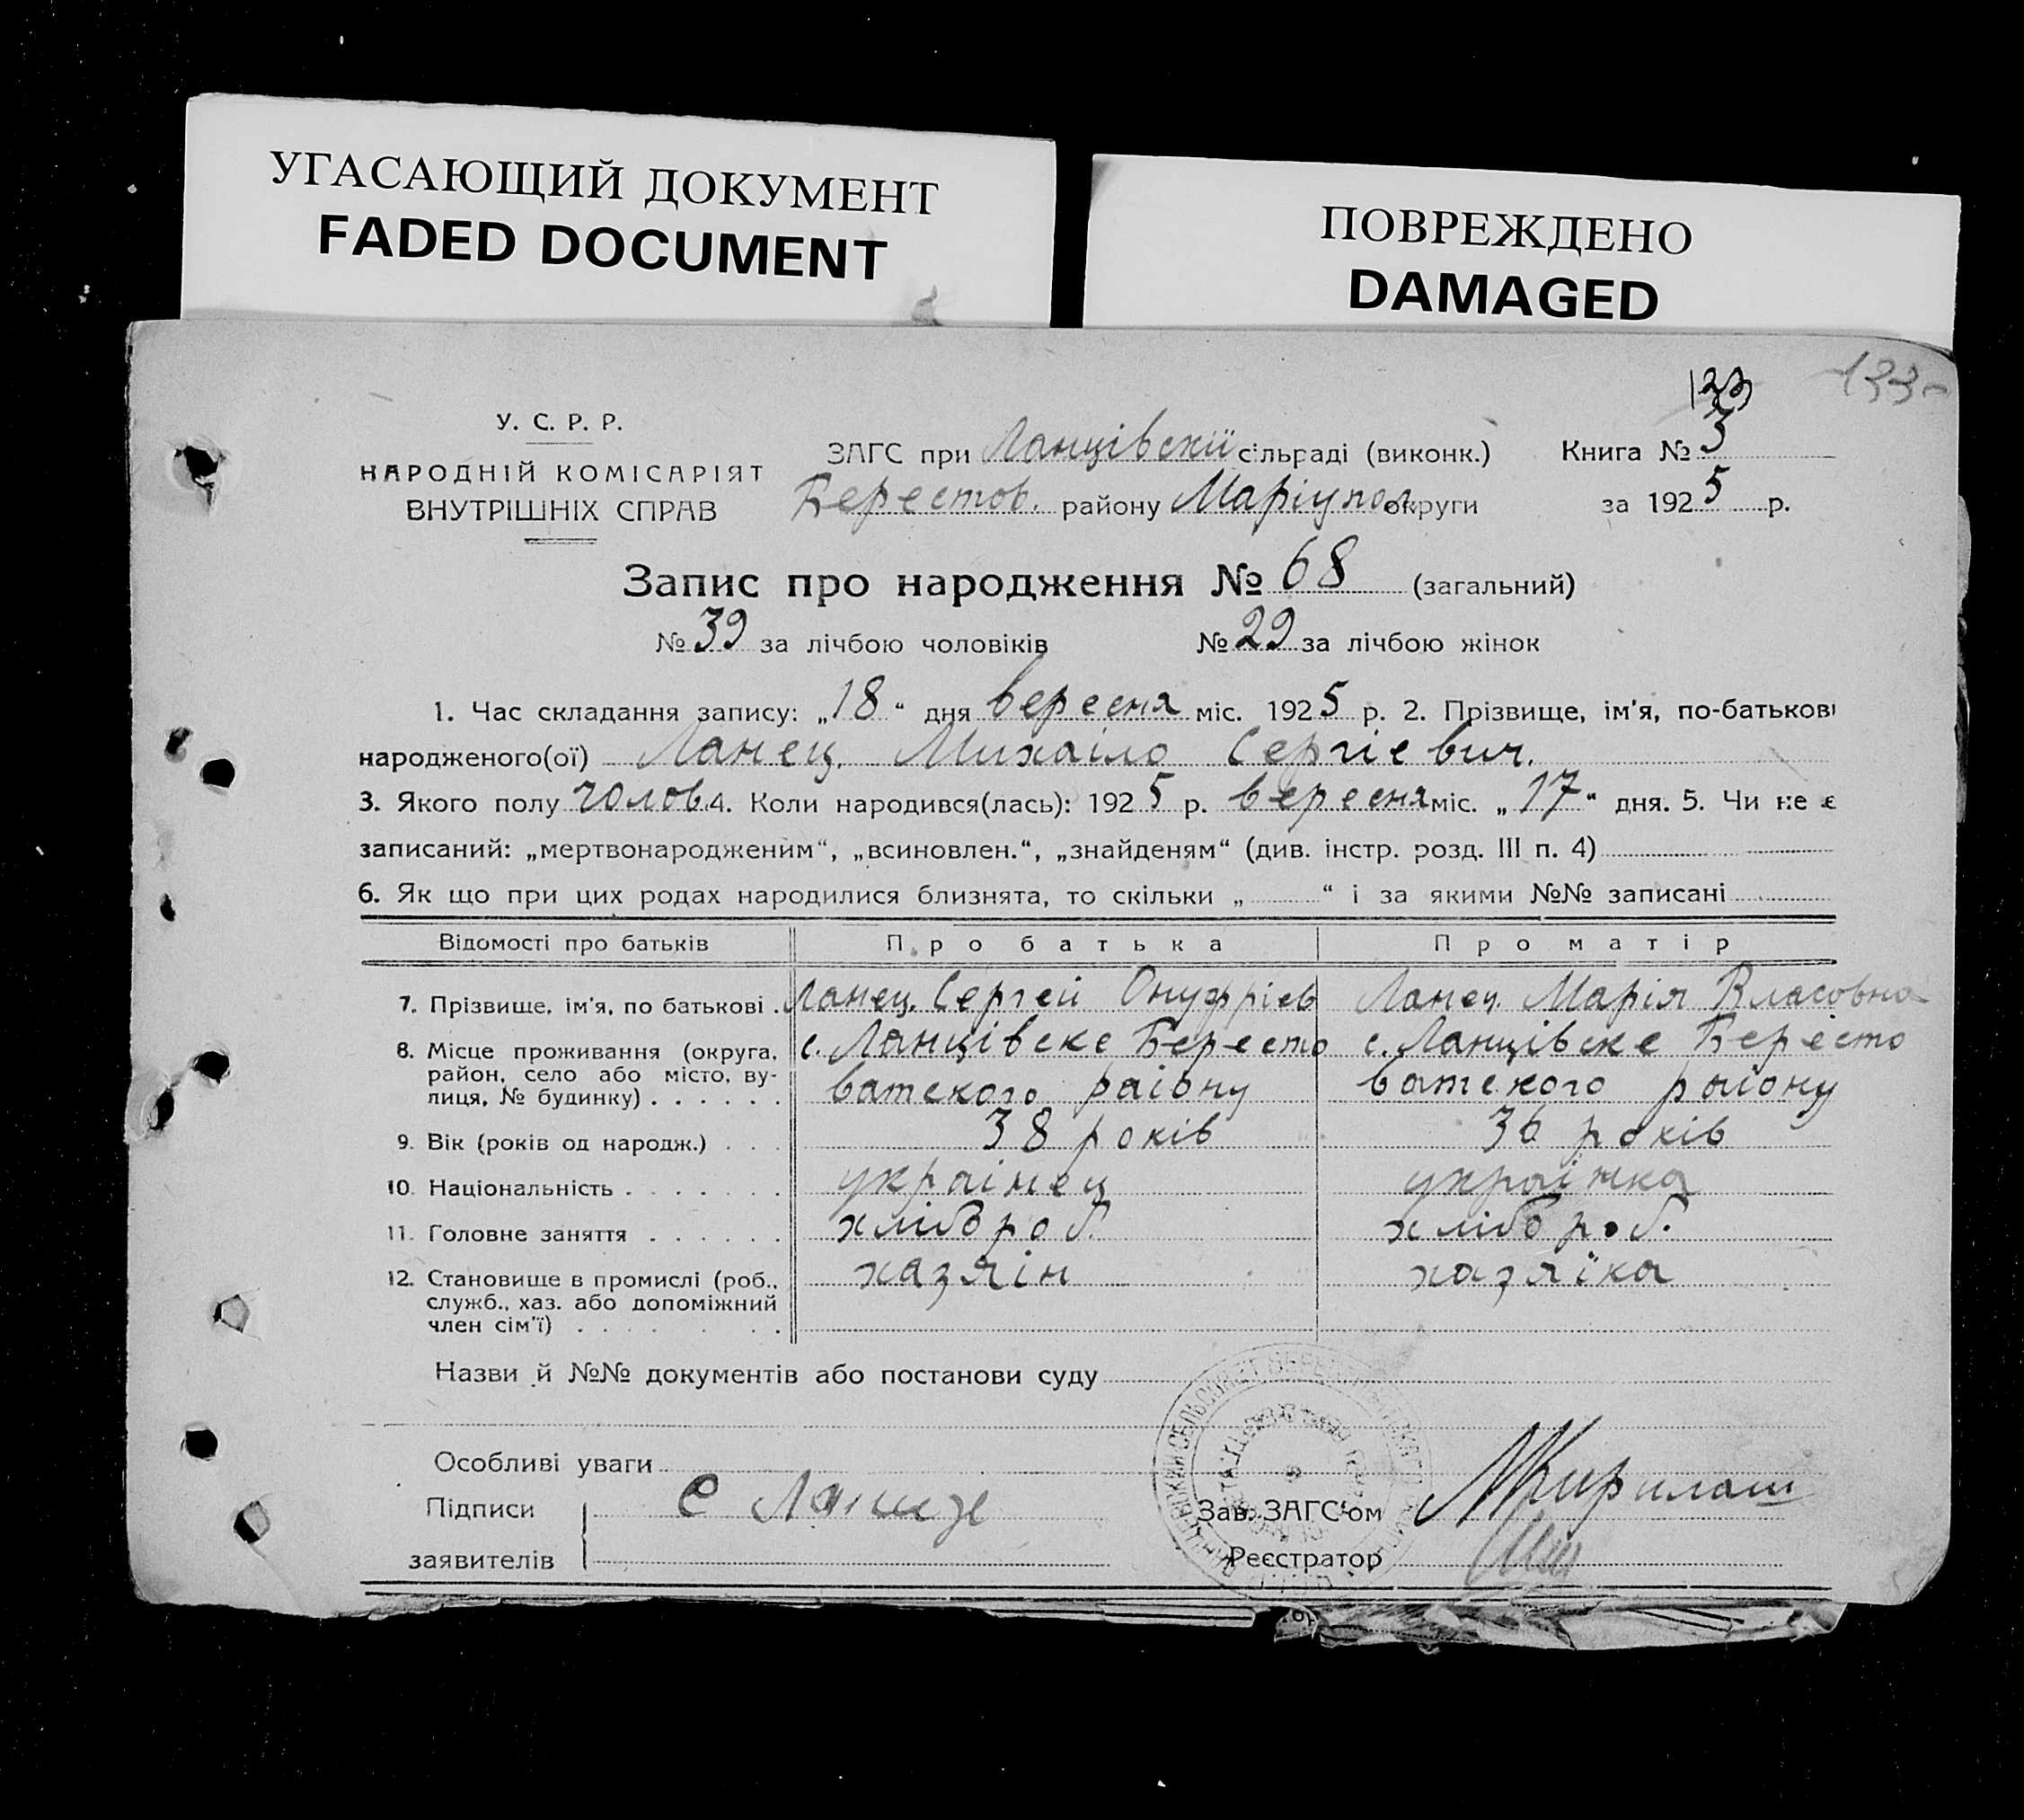 УГАСАЮЩИЙ ДОКУМЕНТ
FADED DOCUMENT
ПОВРЕЖДЕНО
DAMAGED
133
123
У. С. Р. Р.
НАРОДНІЙ КОМІСАРІЯТ
ВНУТРІШНІХ СПРАВ
ЗАГС при Ланцівскій сільраді (виконк.) Книга № 3
Берестов. району Маріупол. округи за 1925 р.
Запис про народження № 68 (загальний)
№ 39 за лічбою чоловіків № 29 за лічбою жінок
1. Час складання запису: „18“ дня вересня міс. 1925 р. 2. Прізвище, ім'я, по-батькові
народженого(ої) Ланец. Михаіло Сергіевич.
3. Якого полу чолов 4. Коли народився(лась): 1925 р. вересня міс. „17“ дня. 5. Чи не є
записаний: „мертвонародженим“, „всиновлен.“, „знайденям“ (див. інстр. розд. III п. 4)
6. Як що при цих родах народилися близнята, то скільки „ “ і за якими №№ записані
Відомості про батьків Про батька Про матір
7. Прізвище, ім'я, по батькові . Ланец. Сергей Онуфріев Ланец. Марія Власовна
8. Місце проживання (округа, с. Ланцівске Бересто с. Ланцівске Бересто
район, село або місто, ву-
лиця, № будинку) . . . . . . ватского раіону ватского раіону
9. Вік (років од народж.) . . . 38 років 36 років
10. Національність . . . . . . . украінец украінка
11. Головне заняття . . . . . . хлібороб. хлібороб.
12. Становище в промислі (роб., хазяін хазяїка
служб., хаз. або допоміжний
член сім'ї) . . . . . .
Назви й №№ документів або постанови суду
Особливі уваги
Підписи
заявителів
Зав. ЗАГС'ом
Реєстратор